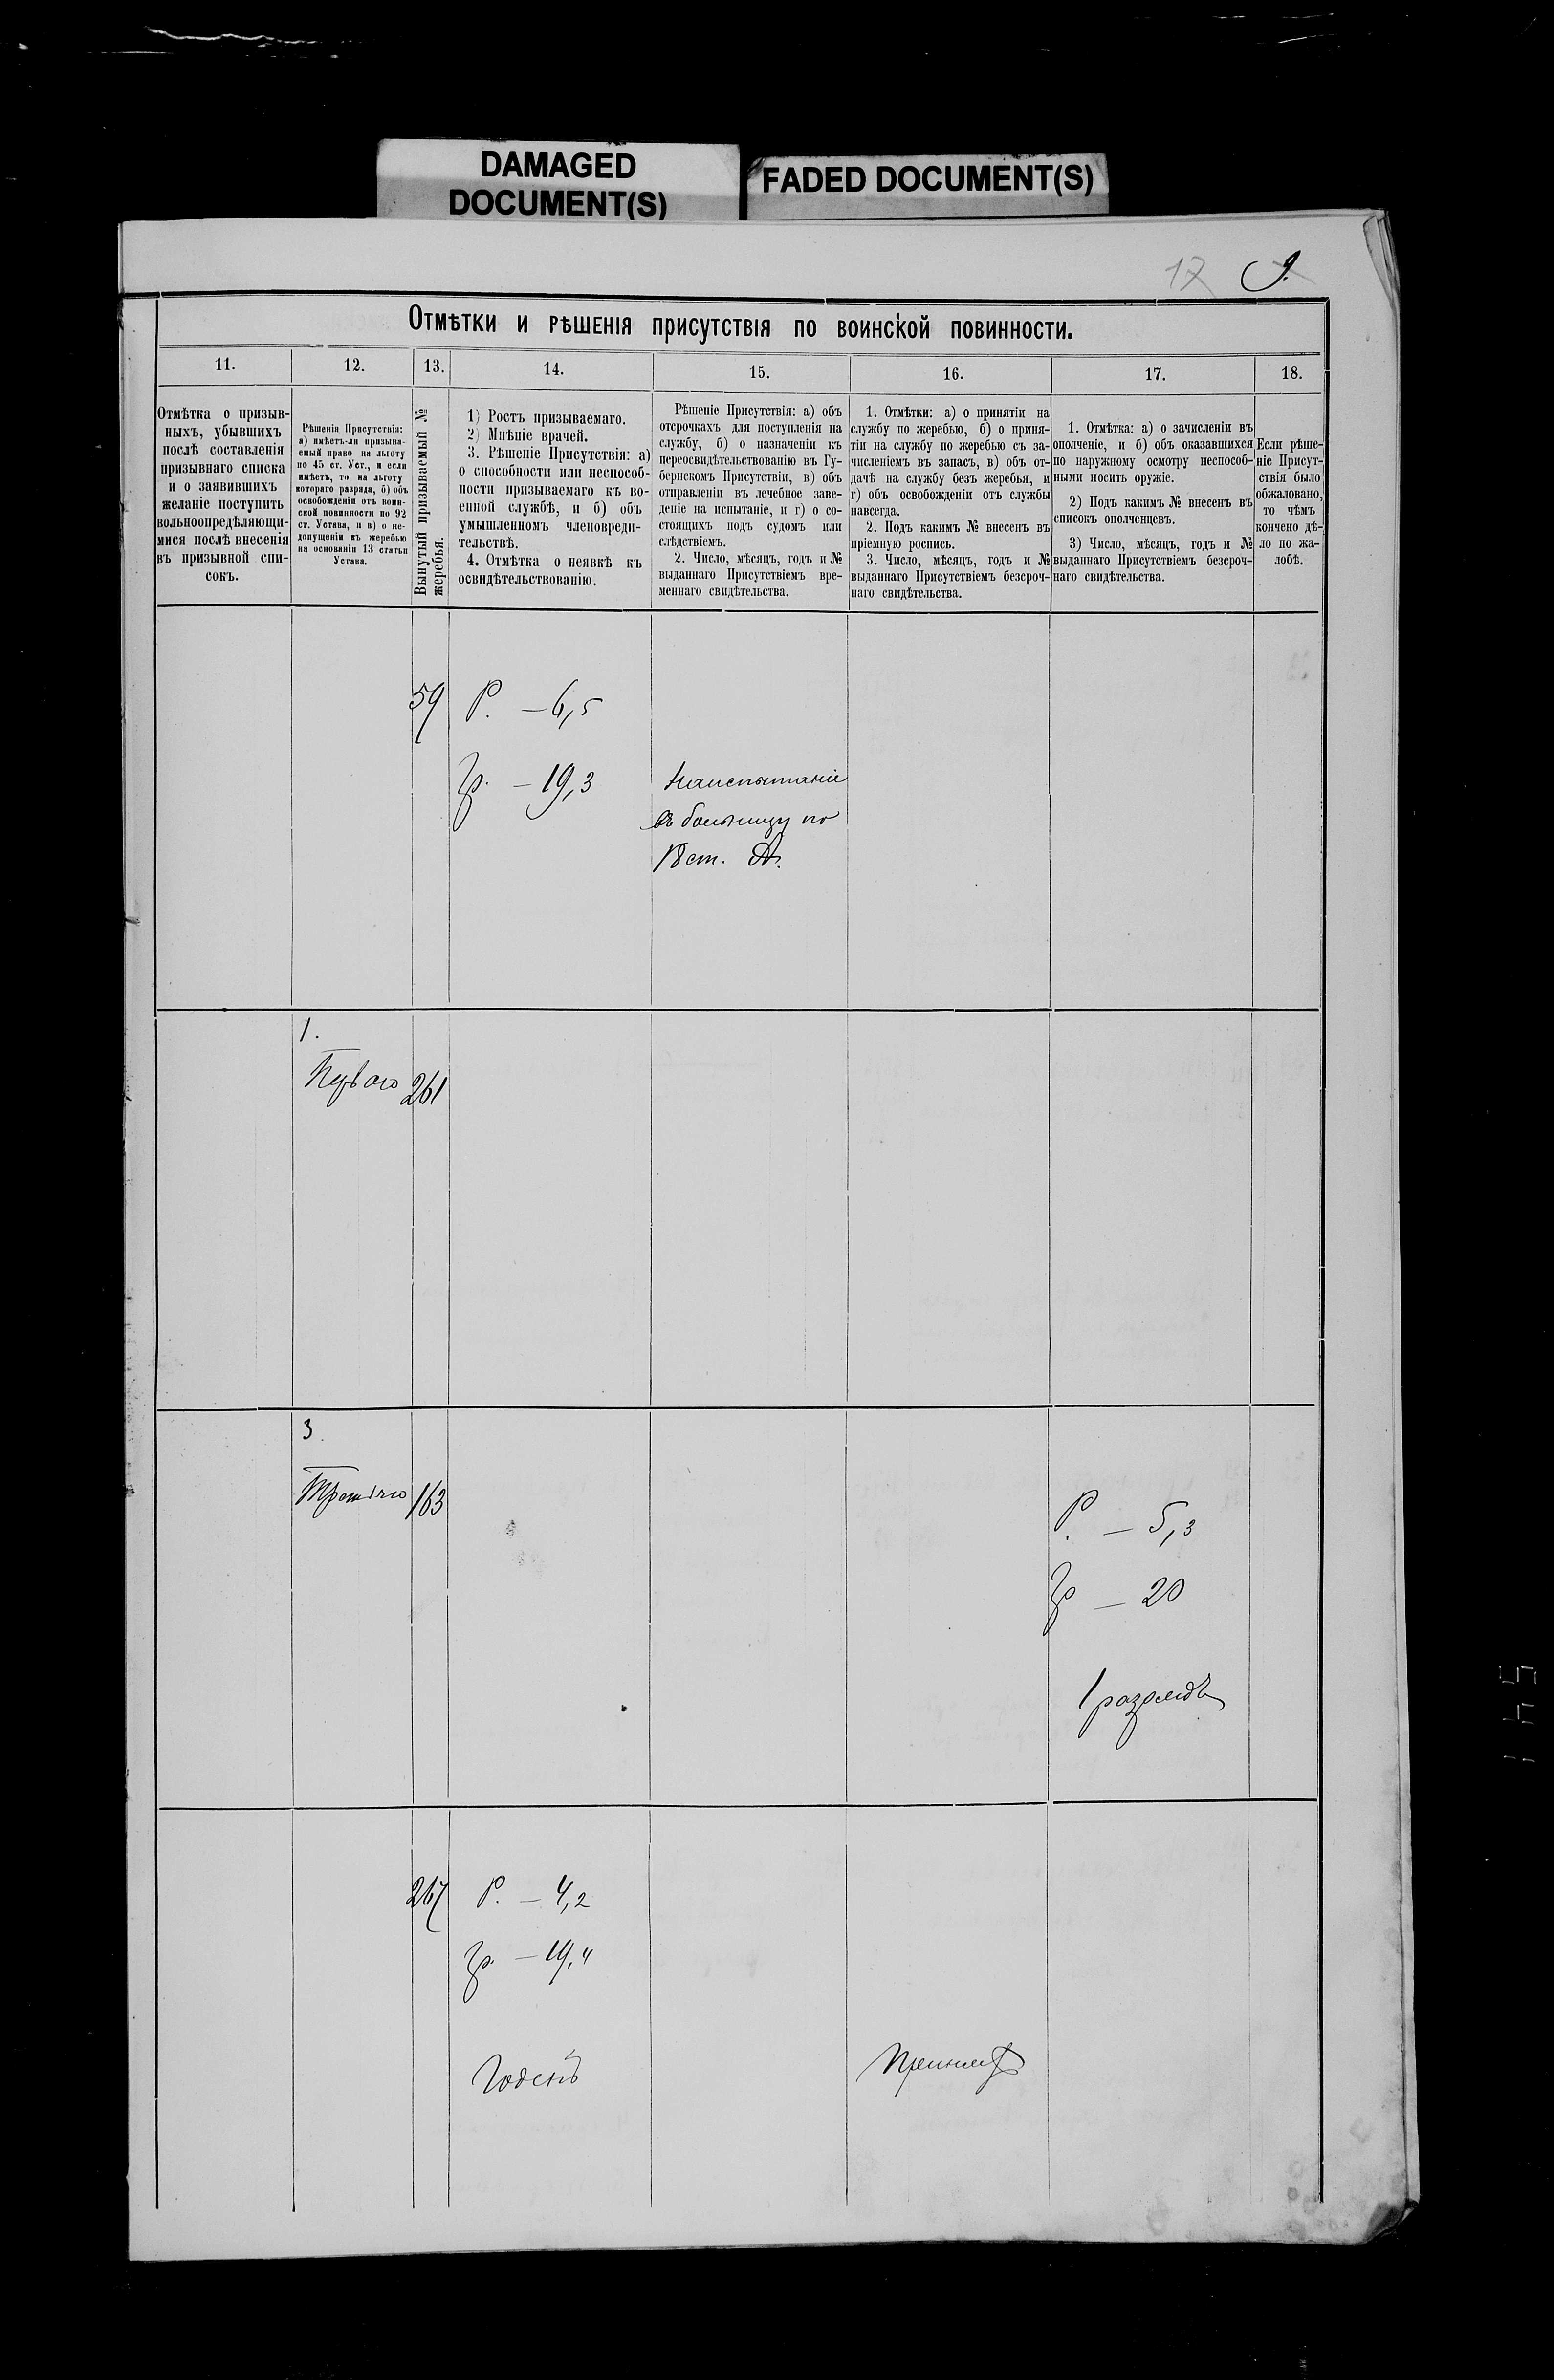 DAMAGED
DOCUMENT(S)
FADED DOCUMENT(S)
17 9.
Отмѣтки и рѣшенія присутствія по воинской повинности.
11. 12. 13. 14. 15. 16. 17. 18.
Отмѣтка о призыв-
ныхъ, убывшихъ
послѣ составленія
призывнаго списка
и о заявившихъ
желаніе поступить
вольноопредѣляющи-
мися послѣ внесенія
въ призывной спи-
сокъ.
Рѣшенія Присутствія:
а) имѣетъ-ли призыва-
емый право на льготу
по 45 ст. Уст., и если
имѣетъ, то на льготу
котораго разряда, б) объ
освобожденіи отъ воин-
ской повинности по 92
ст. Устава, и в) о не-
допущеніи къ жеребью
на основаніи 13 статьи
Устава.
Вынутый призываемый №
жеребья.
1) Ростъ призываемаго.
2) Мнѣніе врачей.
3. Рѣшеніе Присутствія: а)
о способности или неспособ-
ности призываемаго къ во-
енной службѣ, и б) объ
умышленномъ членовреди-
тельствѣ.
4. Отмѣтка о неявкѣ къ
освидѣтельствованію.
Рѣшеніе Присутствія: а) объ
отсрочкахъ для поступленія на
службу, б) о назначеніи къ
переосвидѣтельствованію въ Гу-
бернскомъ Присутствіи, в) объ
отправленіи въ лечебное заве-
деніе на испытаніе, и г) о со-
стоящихъ подъ судомъ или
слѣдствіемъ.
2. Число, мѣсяцъ, годъ и №
выданнаго Присутствіемъ вре-
меннаго свидѣтельства.
1. Отмѣтки: а) о принятіи на
службу по жеребью, б) о приня-
тіи на службу по жеребью съ за-
численіемъ въ запасъ, в) объ от-
дачѣ на службу безъ жеребья, и
г) объ освобожденіи отъ службы
навсегда.
2. Подъ какимъ № внесенъ въ
пріемную роспись.
3. Число, мѣсяцъ, годъ и №
выданнаго Присутствіемъ безсроч-
наго свидѣтельства.
1. Отмѣтка: а) о зачисленіи въ
ополченіе, и б) объ оказавшихся
по наружному осмотру неспособ-
ными носить оружіе.
2) Подъ какимъ № внесенъ въ
списокъ ополченцевъ.
3) Число, мѣсяцъ, годъ и №
выданнаго Присутствіемъ безсроч-
наго свидѣтельства.
Если рѣше-
ніе Присут-
ствія было
обжаловано,
то чѣмъ
кончено дѣ-
ло по жа-
лобѣ.
59 Р. — 6,5
гр. — 19,3
На испытаніе
въ больницу по
18 ст. А.
1.
Перваго 261
3
Третіяго 163
Р. — 5,3
гр — 20
1 разрядъ
267 Р. — 4,2
гр. — 19,4
Годенъ Принятъ